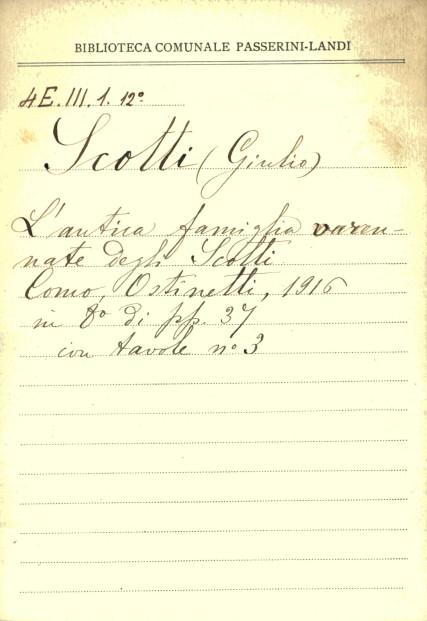 BIBLIOTECA COMUNALE PASSERINI-LANDI
4E.III.1.12º
Scotti (Giulio)
L'antica famiglia varen-
nate degli Scotti
Como, Ostinetti, 1916
in 8º di pp. 37
con tavole nº 3